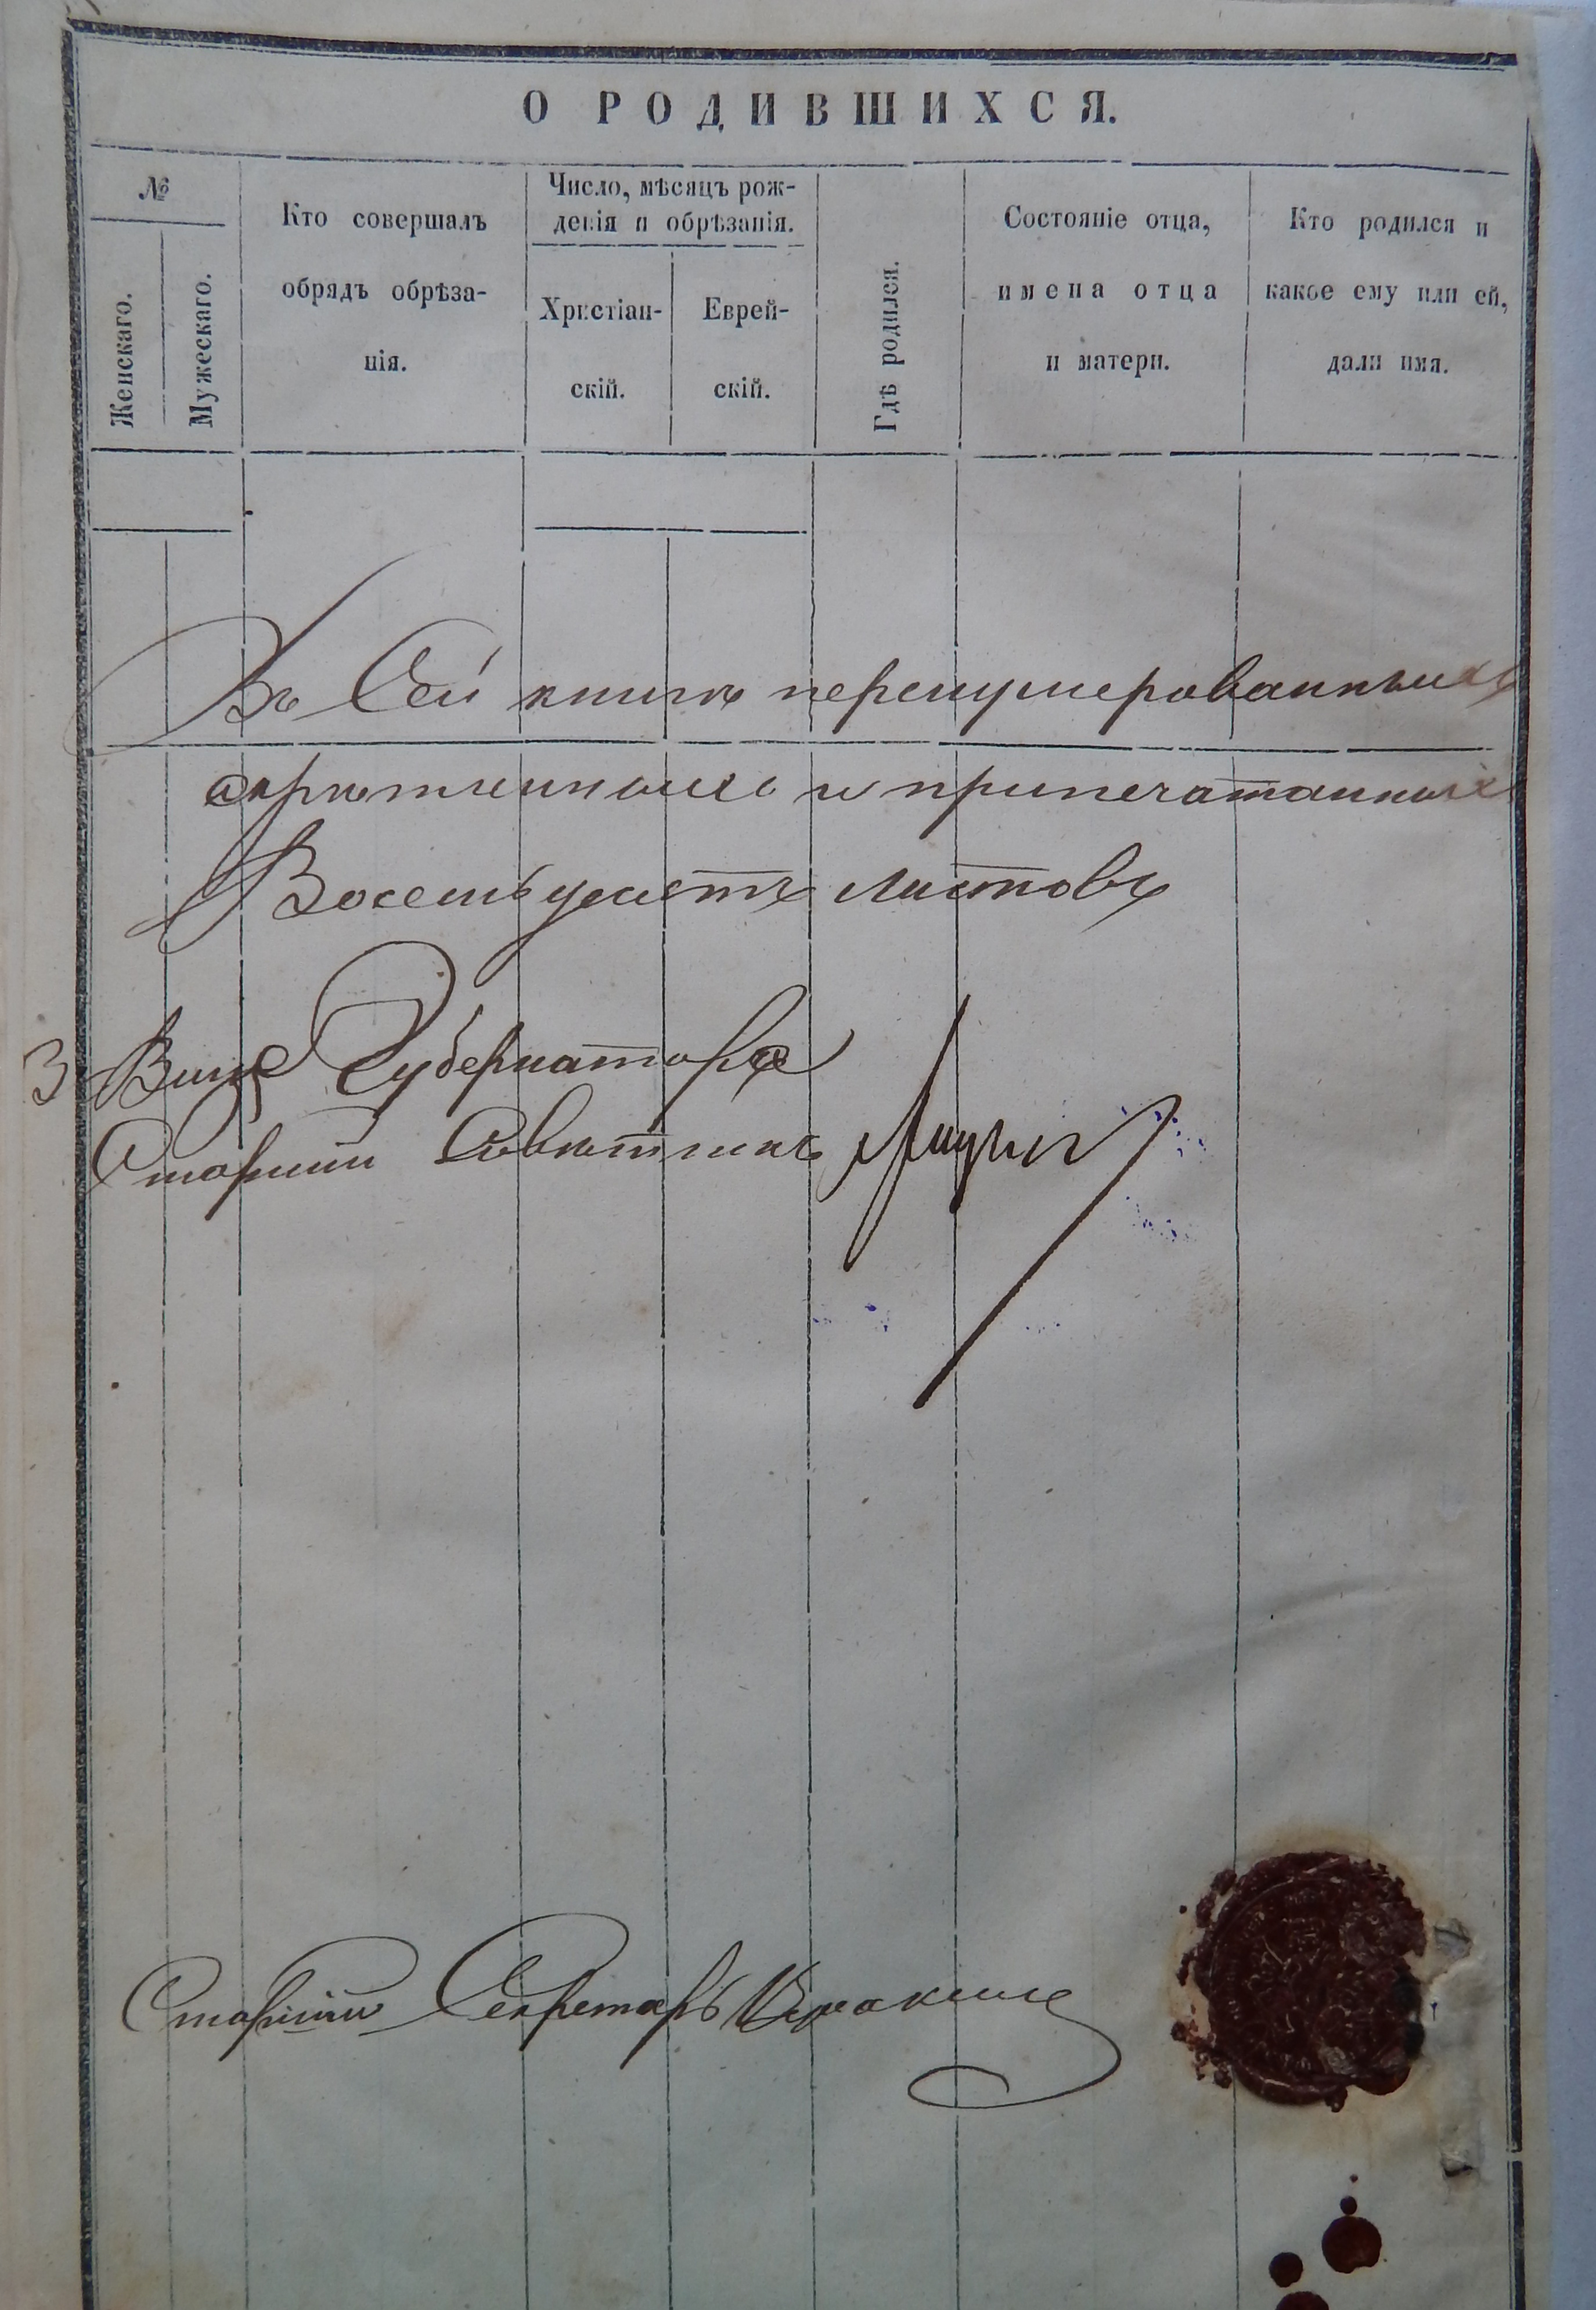 О РОДИВШИХСЯ.
№
Женскаго.
Мужескаго.
Кто совершалъ
обрядъ обрѣза-
нія.
Число, мѣсяцъ рож-
денія и обрѣзанія.
Христіан-
скій.
Еврей-
скій.
Гдѣ родился.
Состояніе отца,
имена отца
и матери.
Кто родился и
какое ему или ей,
дали имя.
Въ Сей книгѣ перенумерованныхъ
скрѣпленныхъ и припечатанныхъ
Восемьдесятъ листовъ
З Вице Губернатора
Старшій Совѣтникъ
Старшій Секретарь